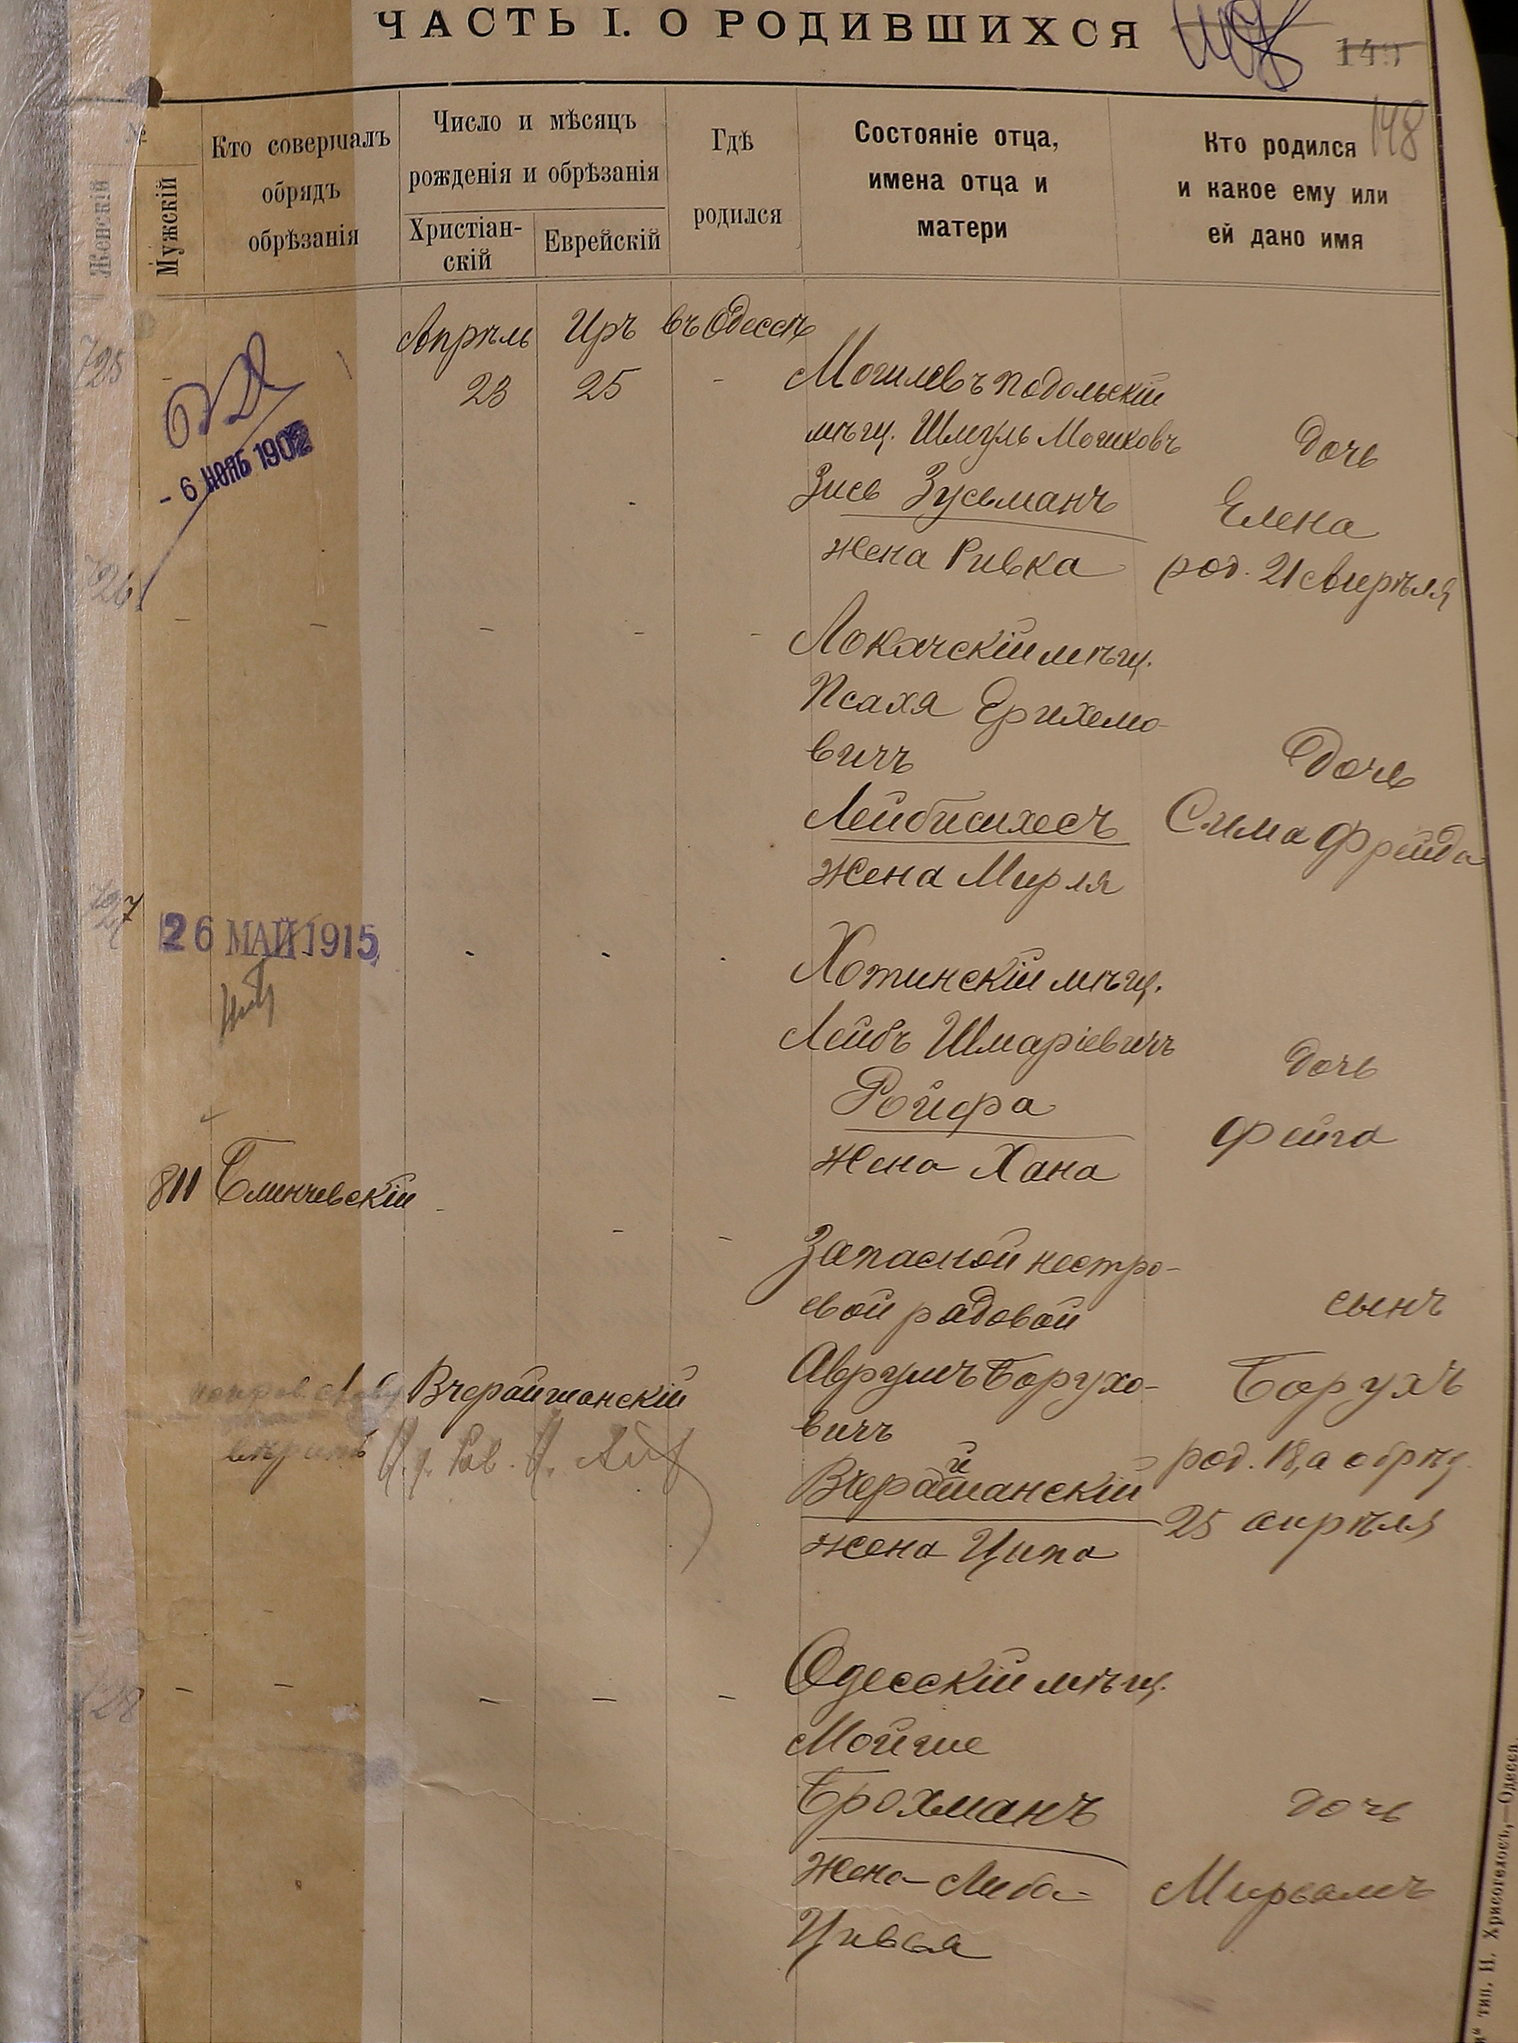 ЧАСТЬ I. О РОДИВШИХСЯ
149
148
№
Женскій
Мужскій
Кто совершалъ
обрядъ
обрѣзанія
Число и мѣсяцъ
рожденія и обрѣзанія
Христіан-
скій
Еврейскій
Гдѣ
родился
Состояніе отца,
имена отца и
матери
Кто родился
и какое ему или
ей дано имя
Апрѣль Иръ въ Одессѣ
725 - 23 25 -
- 6 НОЯБ 1902
Могилевъ Подольскій
мѣщ. Шмуль Мошковъ
Зись Зусьманъ
жена Ривка
дочь
Елена
род. 21 Апрѣля
726 - - - - -
Локачскій мѣщ.
Псахя Ерихемо-
вичъ
Лейбисихесъ
жена Мирля
дочь
Сима Фрейда
727
26 МАЙ 1915
Хотинскій мѣщ.
Лейбъ Шмаріевичъ
Ройфа
жена Хана
дочь
Фейга
811 Блинчевскій - - -
Запасной нестро-
евой рядовой
Аврумъ Борухо-
вичъ
Вчерайшанскій
жена Ципа
сынъ
Борухъ
род. 18, а обрѣз.
25 апрѣля
Вчерайшанскій
вѣрить
728 - - - - -
Одесскій мѣщ.
Мойше
Брохманъ
жена Либа-
Цивья
дочь
Мирьамъ
тип. И. Хрисогелосъ,—Одесса.